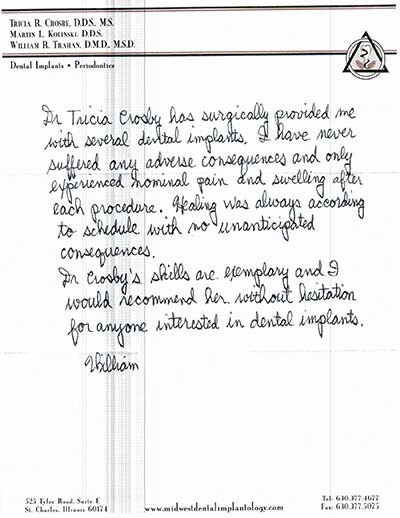 TRICIA R. CROSBY, D.D.S., M.S.
MARTIN L. KOLINSKI, D.D.S.
WILLIAM R. TRAHAN, D.M.D., M.S.D.
Dental Implants • Periodontics
Dr Tricia Crosby has surgically provided me
with several dental implants. I have never
suffered any adverse consequences and only
experienced nominal pain and swelling after
each procedure. Healing was always according
to schedule with no unanticipated
consequences.
Dr Crosby's skills are exemplary and I
would recommend her without hesitation
for anyone interested in dental implants.
William
525 Tyler Road, Suite E
St. Charles, Illinois 60174
www.midwestdentalimplantology.com
Tel: 630.377.4677
Fax: 630.377.5075